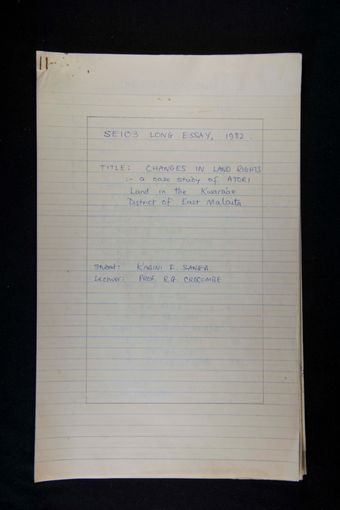 11-
SE103 LONG ESSAY, 1982.
TITLE: CHANGES IN LAND RIGHTS
:- a case study of ATORI
Land in the Kwara'ae
District of East Malaita
Student: K'ABINI F. SANGA
Lecturer: PROF. R.G. CROCOMBE